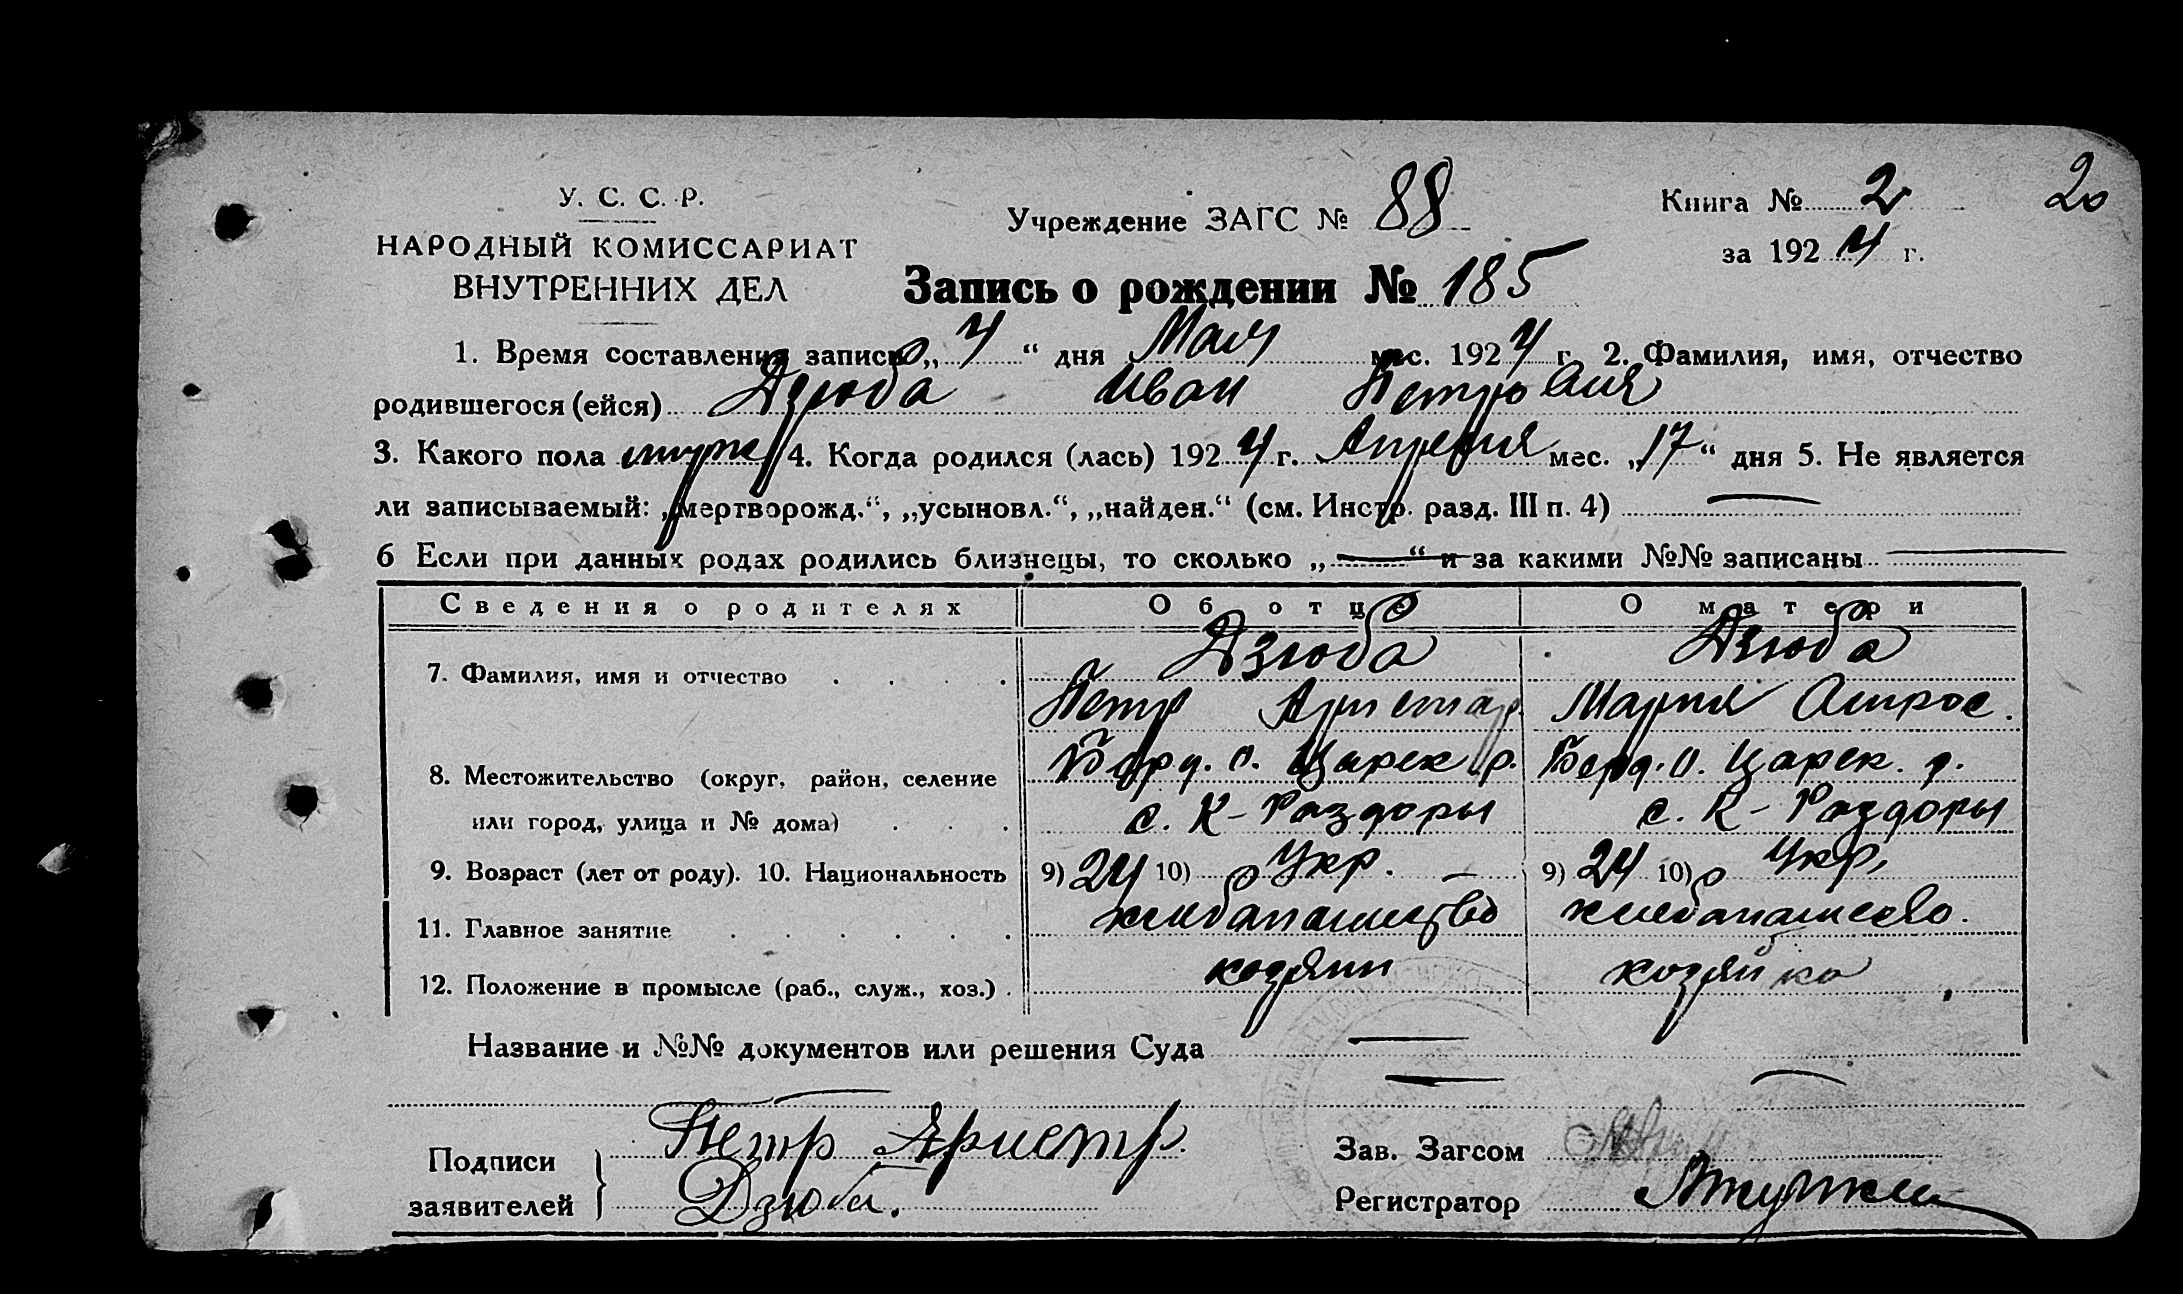 У. С. С. Р.
НАРОДНЫЙ КОМИССАРИАТ
ВНУТРЕННИХ ДЕЛ
Учреждение ЗАГС № 88
Книга № 2
20
за 1924 г.
Запись о рождении № 185
1. Время составления записи „4“ дня Мая мес. 1924 г. 2. Фамилия, имя, отчество
родившегося (ейся) Дзюба Иван Петров
3. Какого пола муж 4. Когда родился (лась) 1924 г. Апреля мес. „17“ дня 5. Не является
ли записываемый: „мертворожд.“, „усыновл.“, „найден.“ (см. Инстр. разд. III п. 4) —
6 Если при данных родах родились близнецы, то сколько „—“ и за какими №№ записаны —
Сведения о родителях Об отце О матери
7. Фамилия, имя и отчество Дзюба Дзюба
Петр Аристар. Мария Амброс.
8. Местожительство (округ, район, селение Берд. о. Царек. р. Берд. о. Царек. р.
или город, улица и № дома) с. К-Раздоры с. К-Раздоры
9. Возраст (лет от роду). 10. Национальность 9) 24 10) Укр. 9) 24 10) Укр.
11. Главное занятие хлебопашество хлебопашество.
12. Положение в промысле (раб., служ., хоз.) хозяин хозяйка
Название и №№ документов или решения Суда —
Подписи заявителей } Петр Аристр.
Дзюба.
Зав. Загсом
Регистратор